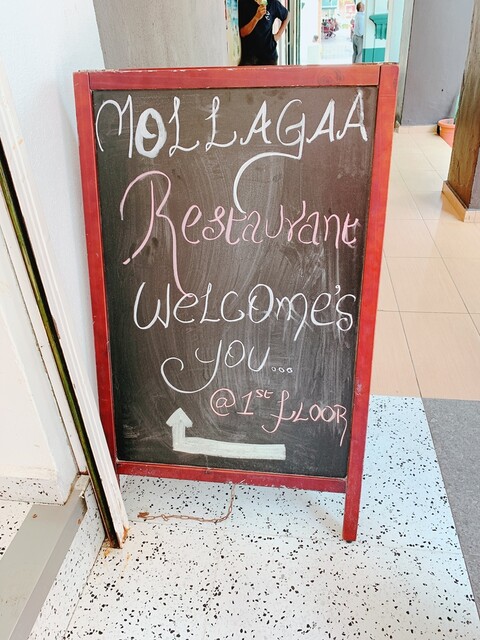 MOLLAGAA
Restaurant
WELCOME'S
YOU...
@ 1st FLOOR